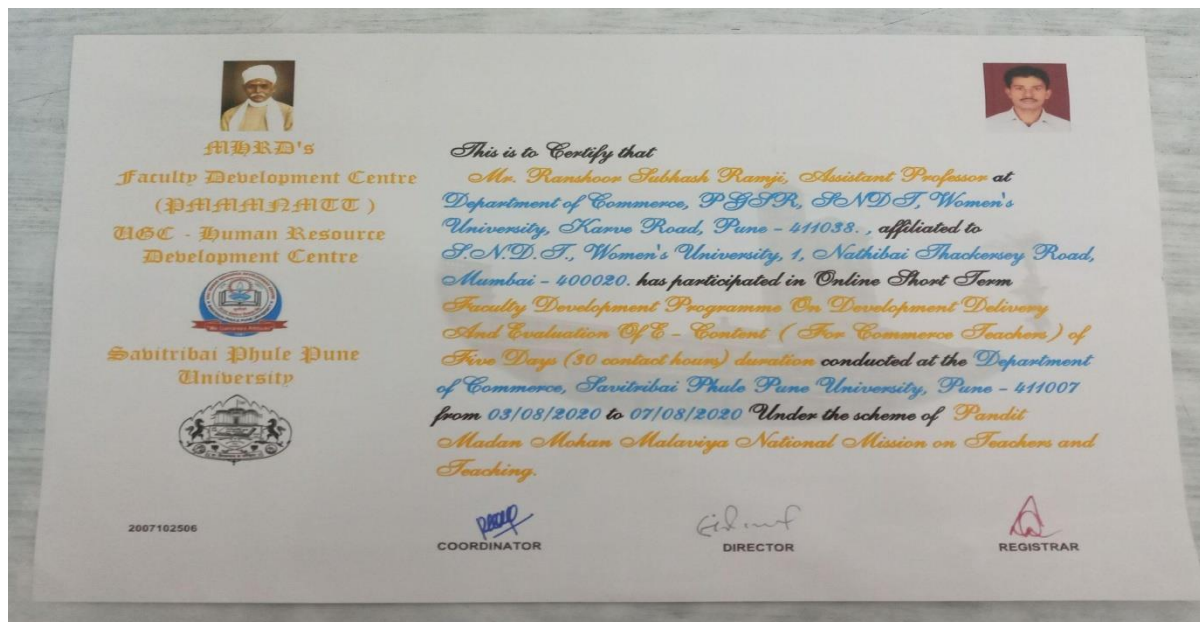 MHRD's
Faculty Development Centre
(PMMMNMTT )
UGC - Human Resource
Development Centre
Savitribai Phule Pune
University
2007102506
This is to Certify that
Mr. Ranshoor Subhash Ramji, Assistant Professor at
Department of Commerce, PGSR, SNDT, Women's
University, Karve Road, Pune - 411038. , affiliated to
S.N.D.T., Women's University, 1, Nathibai Thackersey Road,
Mumbai - 400020. has participated in Online Short Term
Faculty Development Programme On Development Delivery
And Evaluation Of E - Content ( For Commerce Teachers) of
Five Days (30 contact hours) duration conducted at the Department
of Commerce, Savitribai Phule Pune University, Pune - 411007
from 03/08/2020 to 07/08/2020 Under the scheme of Pandit
Madan Mohan Malaviya National Mission on Teachers and
Teaching.
COORDINATOR
DIRECTOR
REGISTRAR